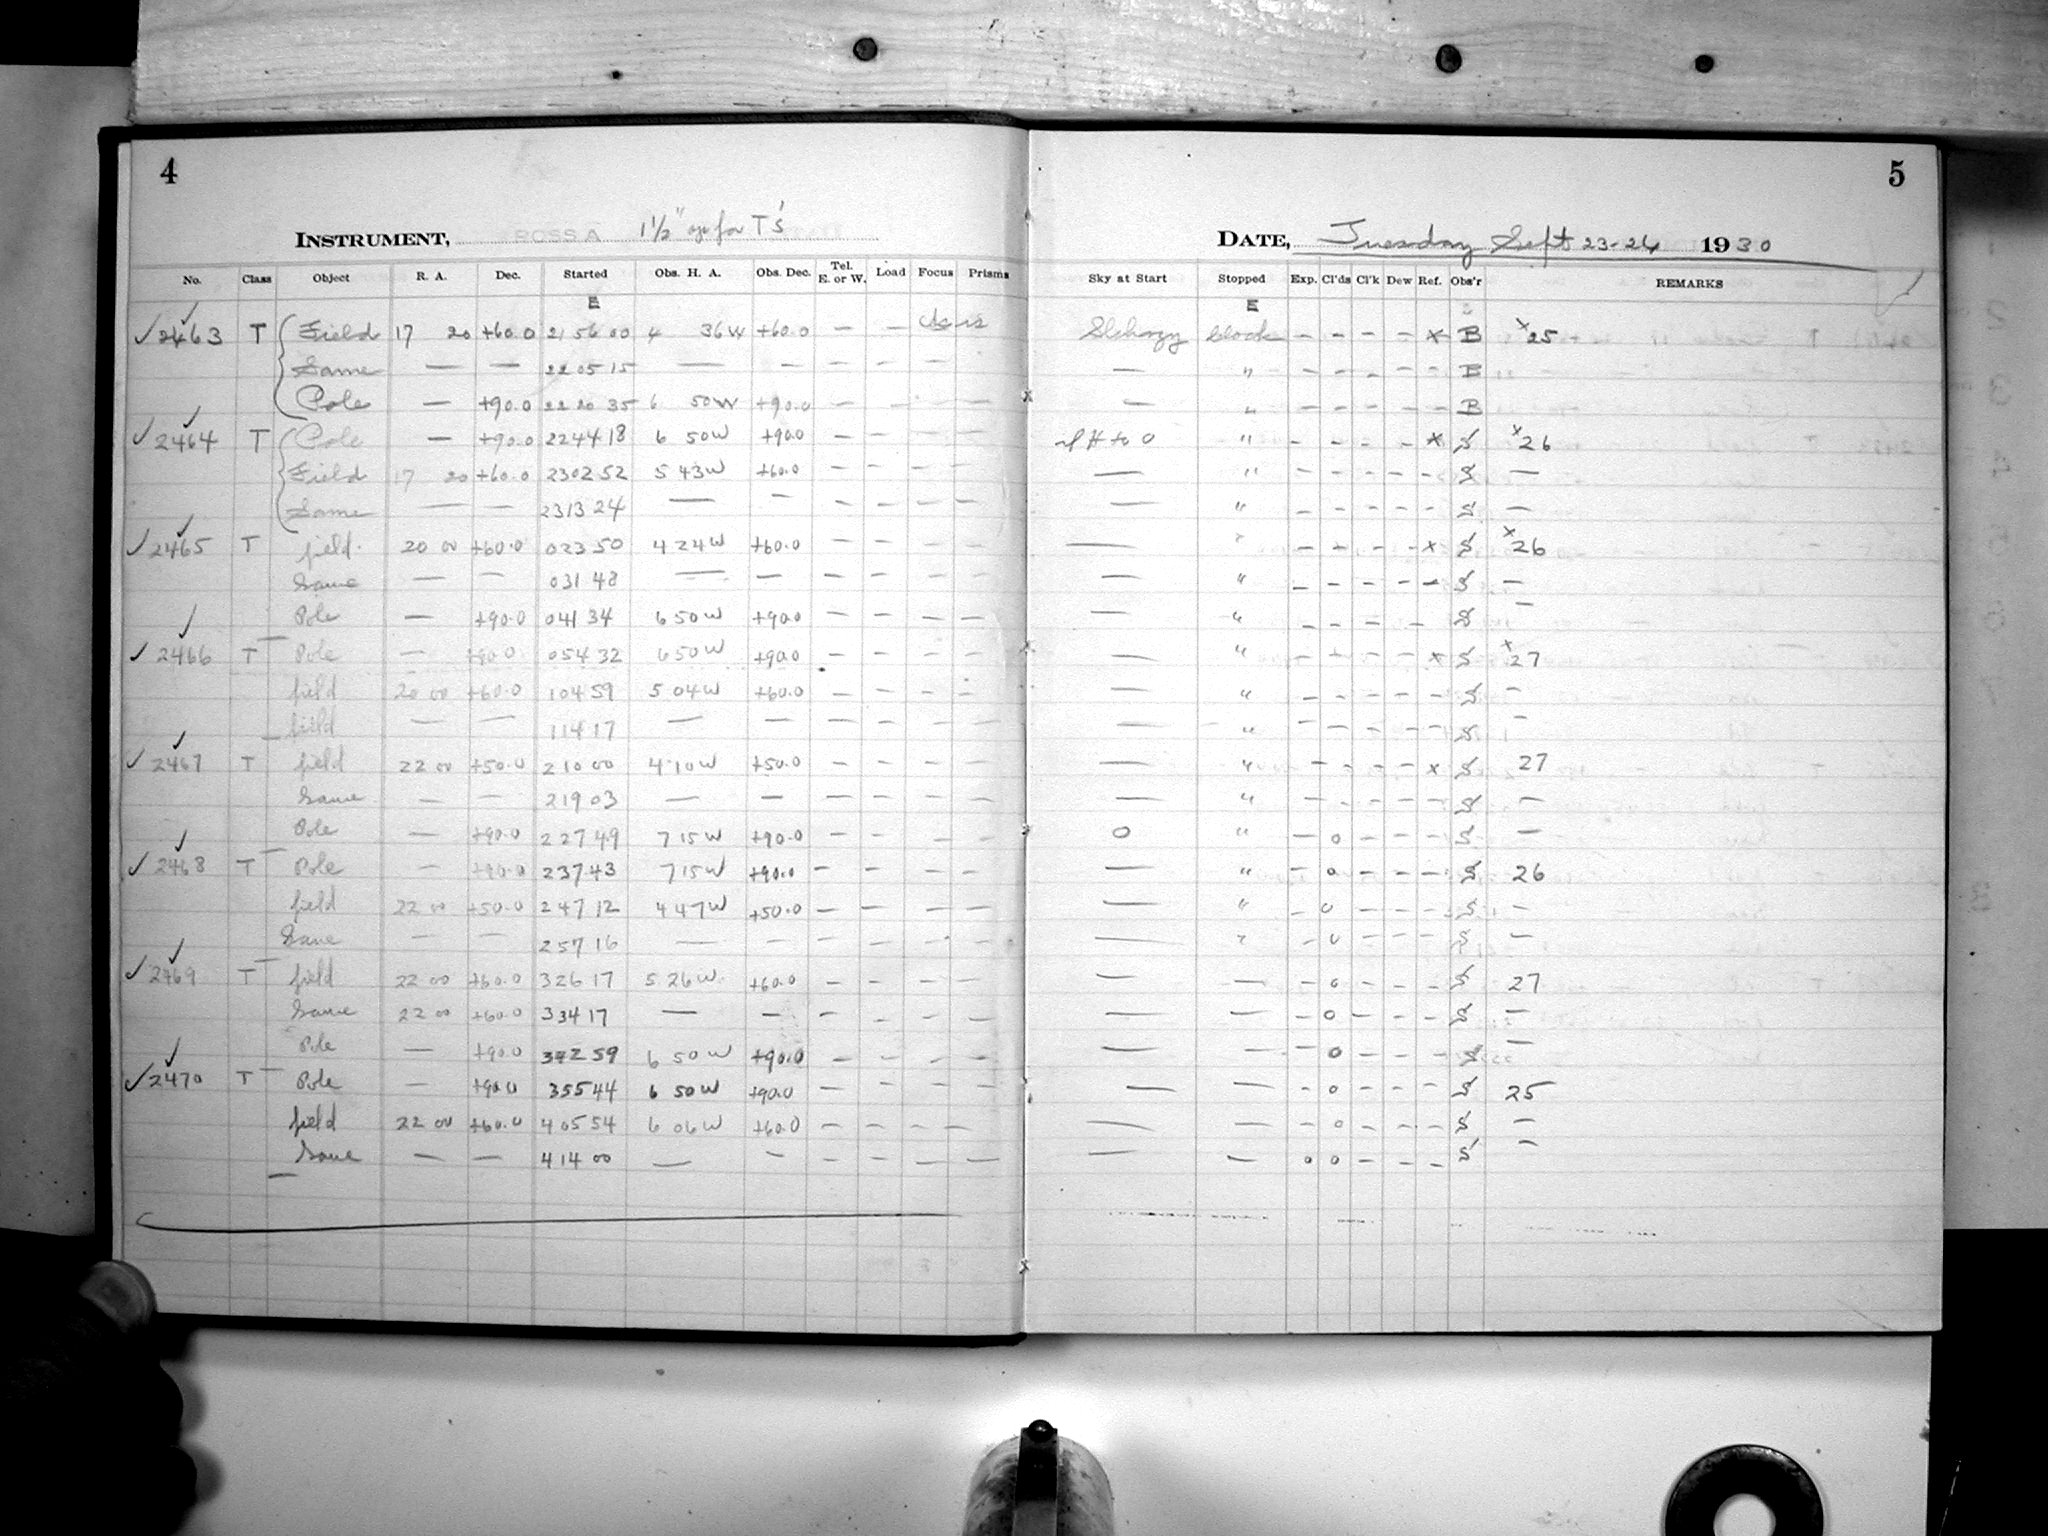 4
INSTRUMENT, ROSS A 1½" ap for T's
No. Class Object R. A. Dec. Started Obs. H. A. Obs. Dec. Tel. E. or W. Load Focus Prisms
E
✓2463 T Field 17 20 +60.0 21 56 00 4 36W +60.0 — —
Same — — 22 05 15 — — — — — —
Pole — +90.0 22 20 35 6 50W +90.0 — — — —
✓2464 T Pole — +90.0 22 44 18 6 50W +90.0 — — — —
Field 17 20 +60.0 23 02 52 5 43W +60.0 — — — —
Same — — 23 13 24 — — — — — —
✓2465 T field 20 00 +60.0 0 23 50 4 24W +60.0 — — — —
Same — — 0 31 48 — — — — — —
Pole — +90.0 0 41 34 6 50W +90.0 — — — —
✓2466 T Pole — +90.0 0 54 32 6 50W +90.0 — — — —
field 20 00 +60.0 1 04 59 5 04W +60.0 — — — —
field — — 1 14 17 — — — — — —
✓2467 T field 22 00 +50.0 2 10 00 4 10W +50.0 — — — —
Same — — 2 19 03 — — — — — —
Pole — +90.0 2 27 49 7 15W +90.0 — — — —
✓2468 T Pole — +90.0 2 37 43 7 15W +90.0 — — — —
field 22 00 +50.0 2 47 12 4 47W +50.0 — — — —
Same — — 2 57 16 — — — — — —
✓2469 T field 22 00 +60.0 3 26 17 5 26W +60.0 — — — —
Same 22 00 +60.0 3 34 17 — — — — — —
Pole — +90.0 59 6 50W +90.0 — — — —
✓2470 T Pole — +90.0 3 55 44 6 50W +90.0 — — — —
field 22 00 +60.0 4 05 54 6 06W +60.0 — — — —
Same — — 4 14 00 — — — — — —
5
DATE, Tuesday Sept 23-24 1930
Sky at Start Stopped Exp. Cl'ds Cl'k Dew Ref. Obs'r REMARKS
E
Sl hazy clock — — — — x B x25
— " — — — — — B
— " — — — — — B
to 0 " — — — — x S x26
— " — — — — — S —
— " — — — — — S —
— " — — — — x S x26
— " — — — — — S —
— " — — — — S —
— " — — — x S x27
— " — — — — — S —
— " — — — — — S —
— " — — — — x S 27
— " — — — — — S —
0 " — 0 — — — S —
— " — 0 — — — S 26
— " — 0 — — — S —
— " — 0 — — — S —
— — — 0 — — — S 27
— — — 0 — — — S —
— — — 0 — — — S —
— — — 0 — — — S 25
— — — 0 — — — S —
— — 0 0 — — — S —